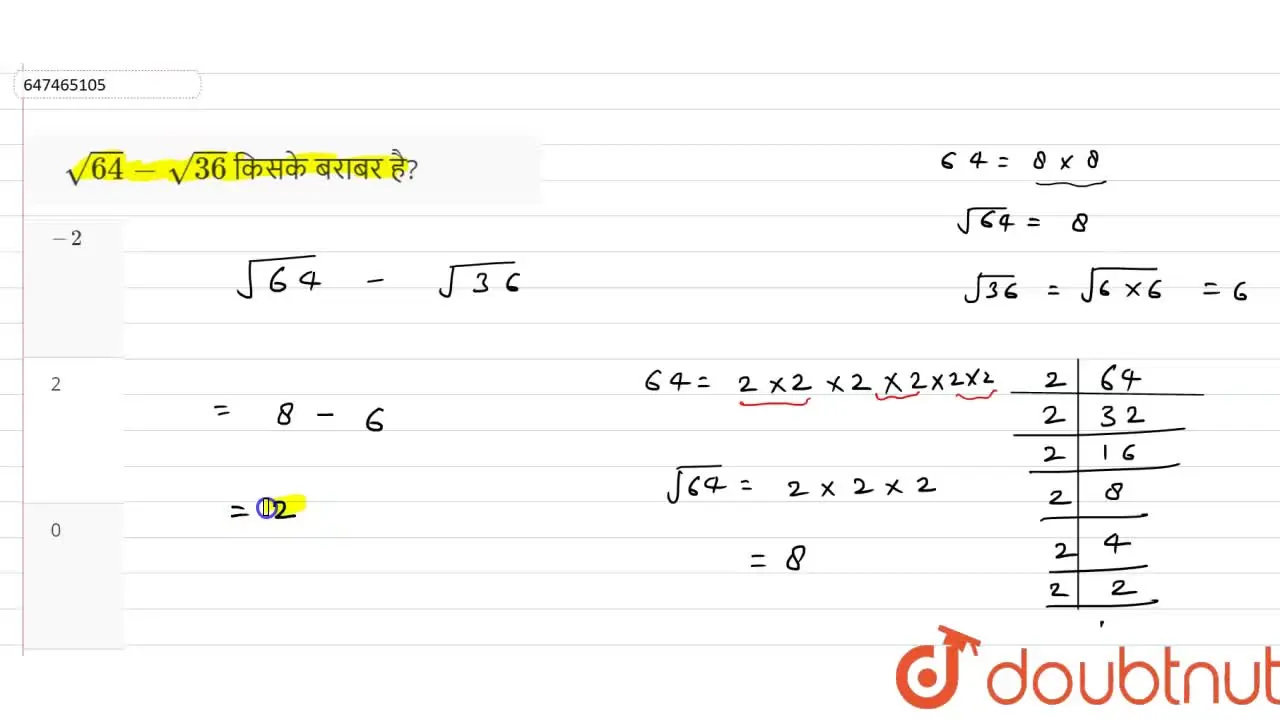 647465105
√64 − √36 किसके बराबर है?
−2
2
0
√64 − √36
= 8 − 6
= 2
64 = 8 × 8
√64 = 8
√36 = √6 × 6 = 6
64 = 2 × 2 × 2 × 2 × 2 × 2
√64 = 2 × 2 × 2
= 8
2 64
2 32
2 16
2 8
2 4
2 2
doubtnut